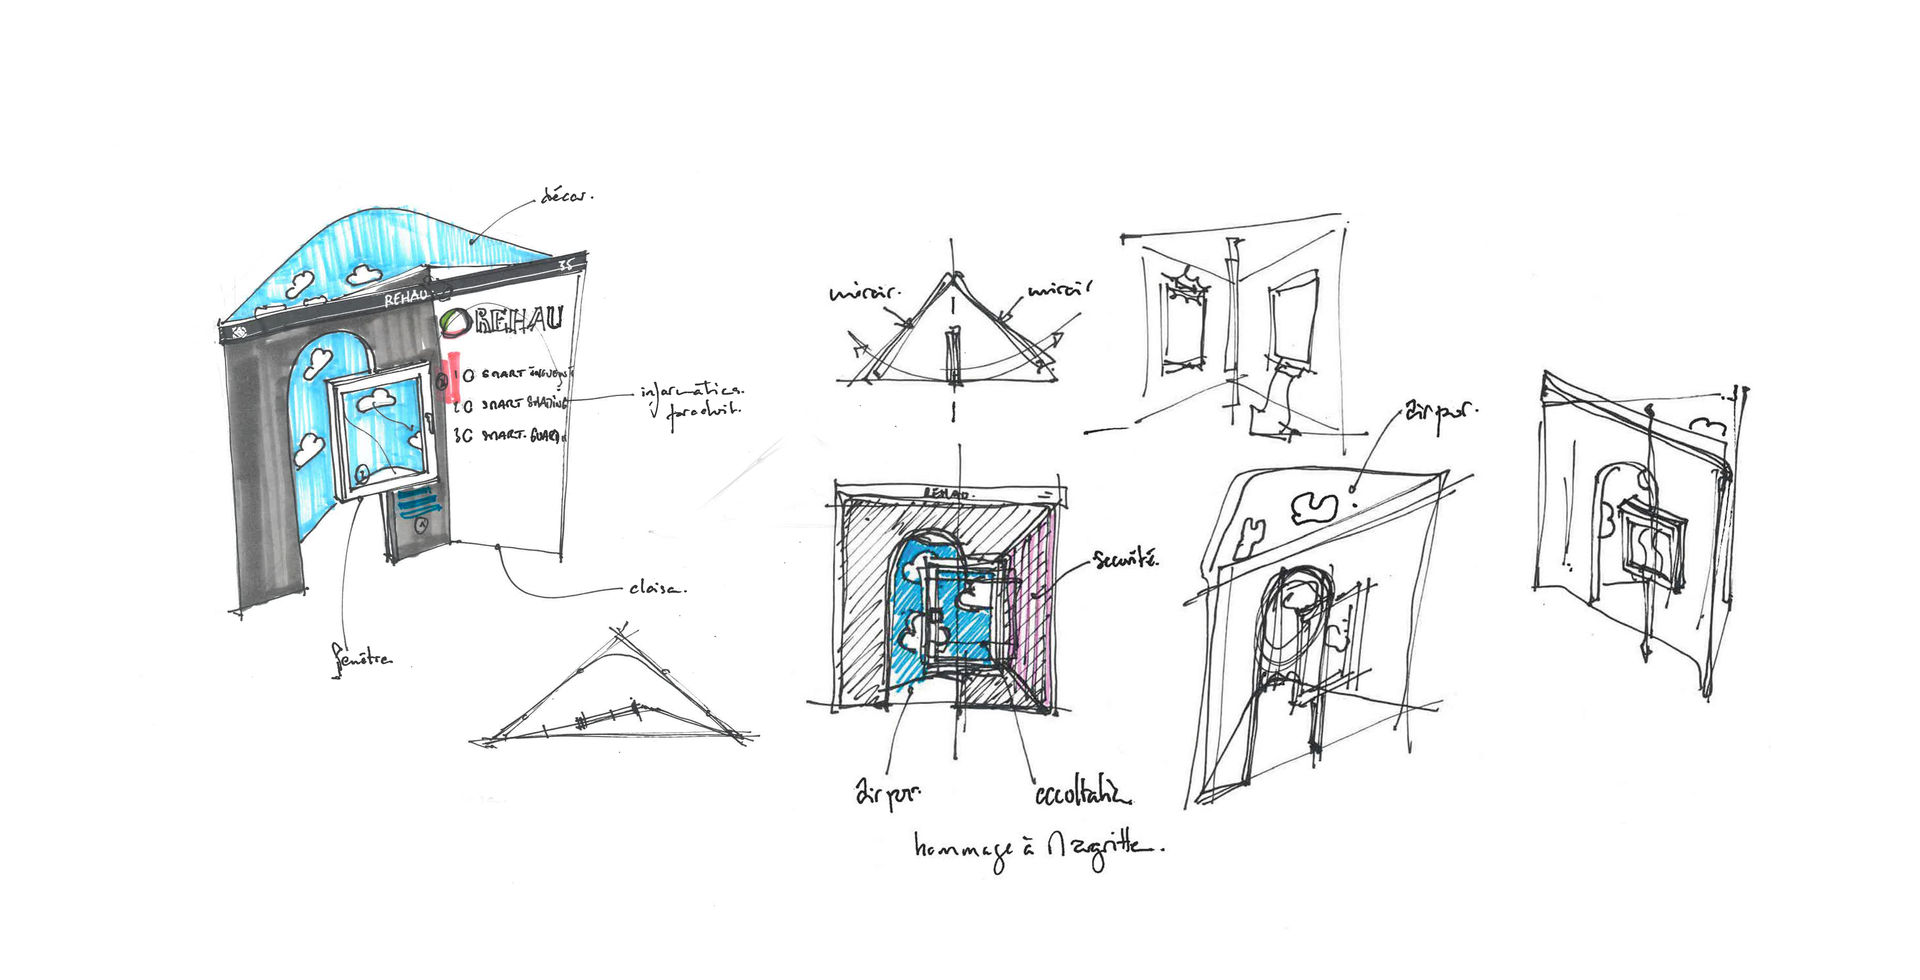 décor.
35
REHAU
REHAU
10 SMART
20 SMART SHADING
30 SMART-GUARD
informations
produit.
cloison.
fenêtre
miroir.
miroir
air pur.
REHAU.
Sécurité.
air pur.
occultation
hommage à Magritte.